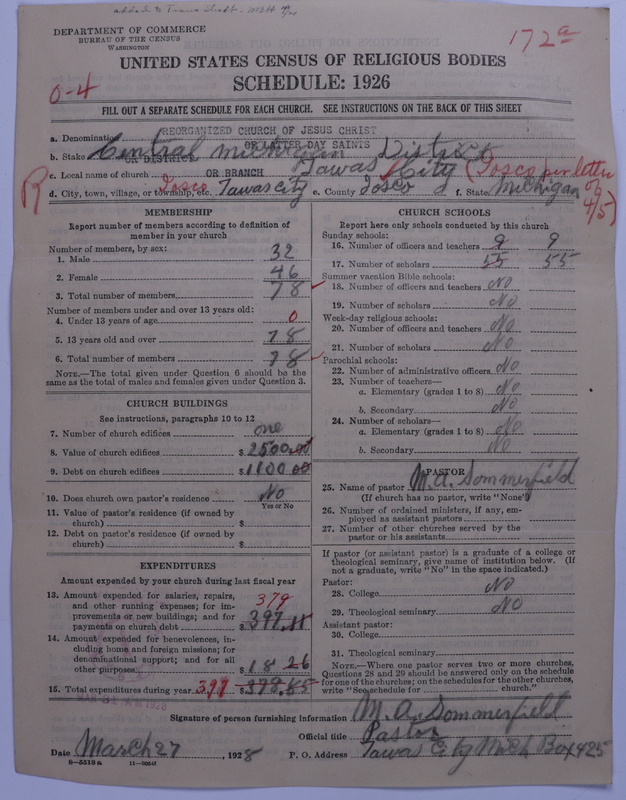 added to Trans. Sheet
DEPARTMENT OF COMMERCE
BUREAU OF THE CENSUS
WASHINGTON
172a
UNITED STATES CENSUS OF RELIGIOUS BODIES
SCHEDULE: 1926
0-4
FILL OUT A SEPARATE SCHEDULE FOR EACH CHURCH. SEE INSTRUCTIONS ON THE BACK OF THIS SHEET
a. Denomination REORGANIZED CHURCH OF JESUS CHRIST
OF LATTER DAY SAINTS
b. Stake OR DISTRICT Central Michigan District
c. Local name of church OR BRANCH Tawas City (Iosco per letter of 4/5)
R
d. City, town, village, or township, etc. Iosco Tawas City e. County Iosco f. State Michigan
MEMBERSHIP
Report number of members according to definition of member in your church
Number of members, by sex:
1. Male 32
2. Female 46
3. Total number of members 78
Number of members under and over 13 years old:
4. Under 13 years of age 0
5. 13 years old and over 78
6. Total number of members 78
NOTE.—The total given under Question 6 should be the same as the total of males and females given under Question 3.
CHURCH BUILDINGS
See instructions, paragraphs 10 to 12
7. Number of church edifices one
8. Value of church edifices $ 2500.00
9. Debt on church edifices $ 1100.00
10. Does church own pastor's residence No
Yes or No
11. Value of pastor's residence (if owned by church) $
12. Debt on pastor's residence (if owned by church) $
EXPENDITURES
Amount expended by your church during last fiscal year
13. Amount expended for salaries, repairs, and other running expenses; for improvements or new buildings; and for payments on church debt 379 $
14. Amount expended for benevolences, including home and foreign missions; for denominational support; and for all other purposes $ 18 26
15. Total expenditures during year 397 $
CHURCH SCHOOLS
Report here only schools conducted by this church
Sunday schools:
16. Number of officers and teachers 9 9
17. Number of scholars 55 55
Summer vacation Bible schools:
18. Number of officers and teachers No
19. Number of scholars No
Week-day religious schools:
20. Number of officers and teachers No
21. Number of scholars No
Parochial schools:
22. Number of administrative officers No
23. Number of teachers—
a. Elementary (grades 1 to 8) No
b. Secondary No
24. Number of scholars—
a. Elementary (grades 1 to 8) No
b. Secondary No
PASTOR
25. Name of pastor M. A. Sommerfield
(If church has no pastor, write "None")
26. Number of ordained ministers, if any, employed as assistant pastors
27. Number of other churches served by the pastor or his assistants
If pastor (or assistant pastor) is a graduate of a college or theological seminary, give name of institution below. (If not a graduate, write "No" in the space indicated.)
Pastor:
28. College No
29. Theological seminary No
Assistant pastor:
30. College
31. Theological seminary
NOTE.—Where one pastor serves two or more churches, Questions 28 and 29 should be answered only on the schedule for one of the churches; on the schedules for the other churches, write "See schedule for church."
Signature of person furnishing information M. A. Sommerfield
Official title Pastor
Date March 27, 1928 P. O. Address Tawas City Mich Box 425
8-5518a 11-9054f